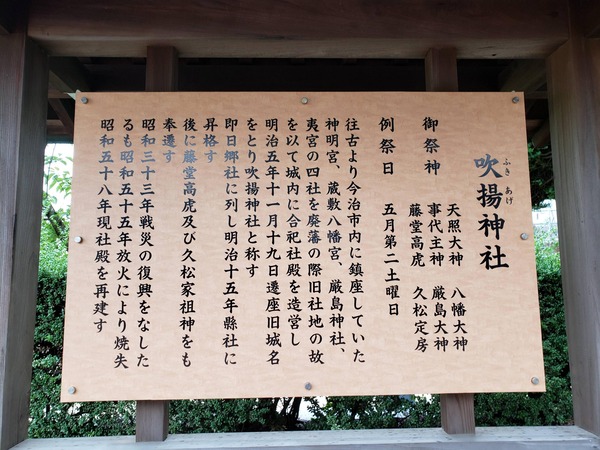 吹揚神社
ふき あげ
御祭神 天照大神 八幡大神
事代主神 厳島大神
藤堂高虎 久松定房
例祭日 五月第二土曜日
往古より今治市内に鎮座していた
神明宮、蔵敷八幡宮、厳島神社、
夷宮の四社を廃藩の際旧社地の故
を以て城内に合祀社殿を造営し
明治五年十一月十九日遷座旧城名
をとり吹揚神社と称す
即日郷社に列し明治十五年縣社に
昇格す
後に藤堂高虎及び久松家祖神をも
奉遷す
昭和三十三年戦災の復興をなした
るも昭和五十五年放火により焼失
昭和五十八年現社殿を再建す